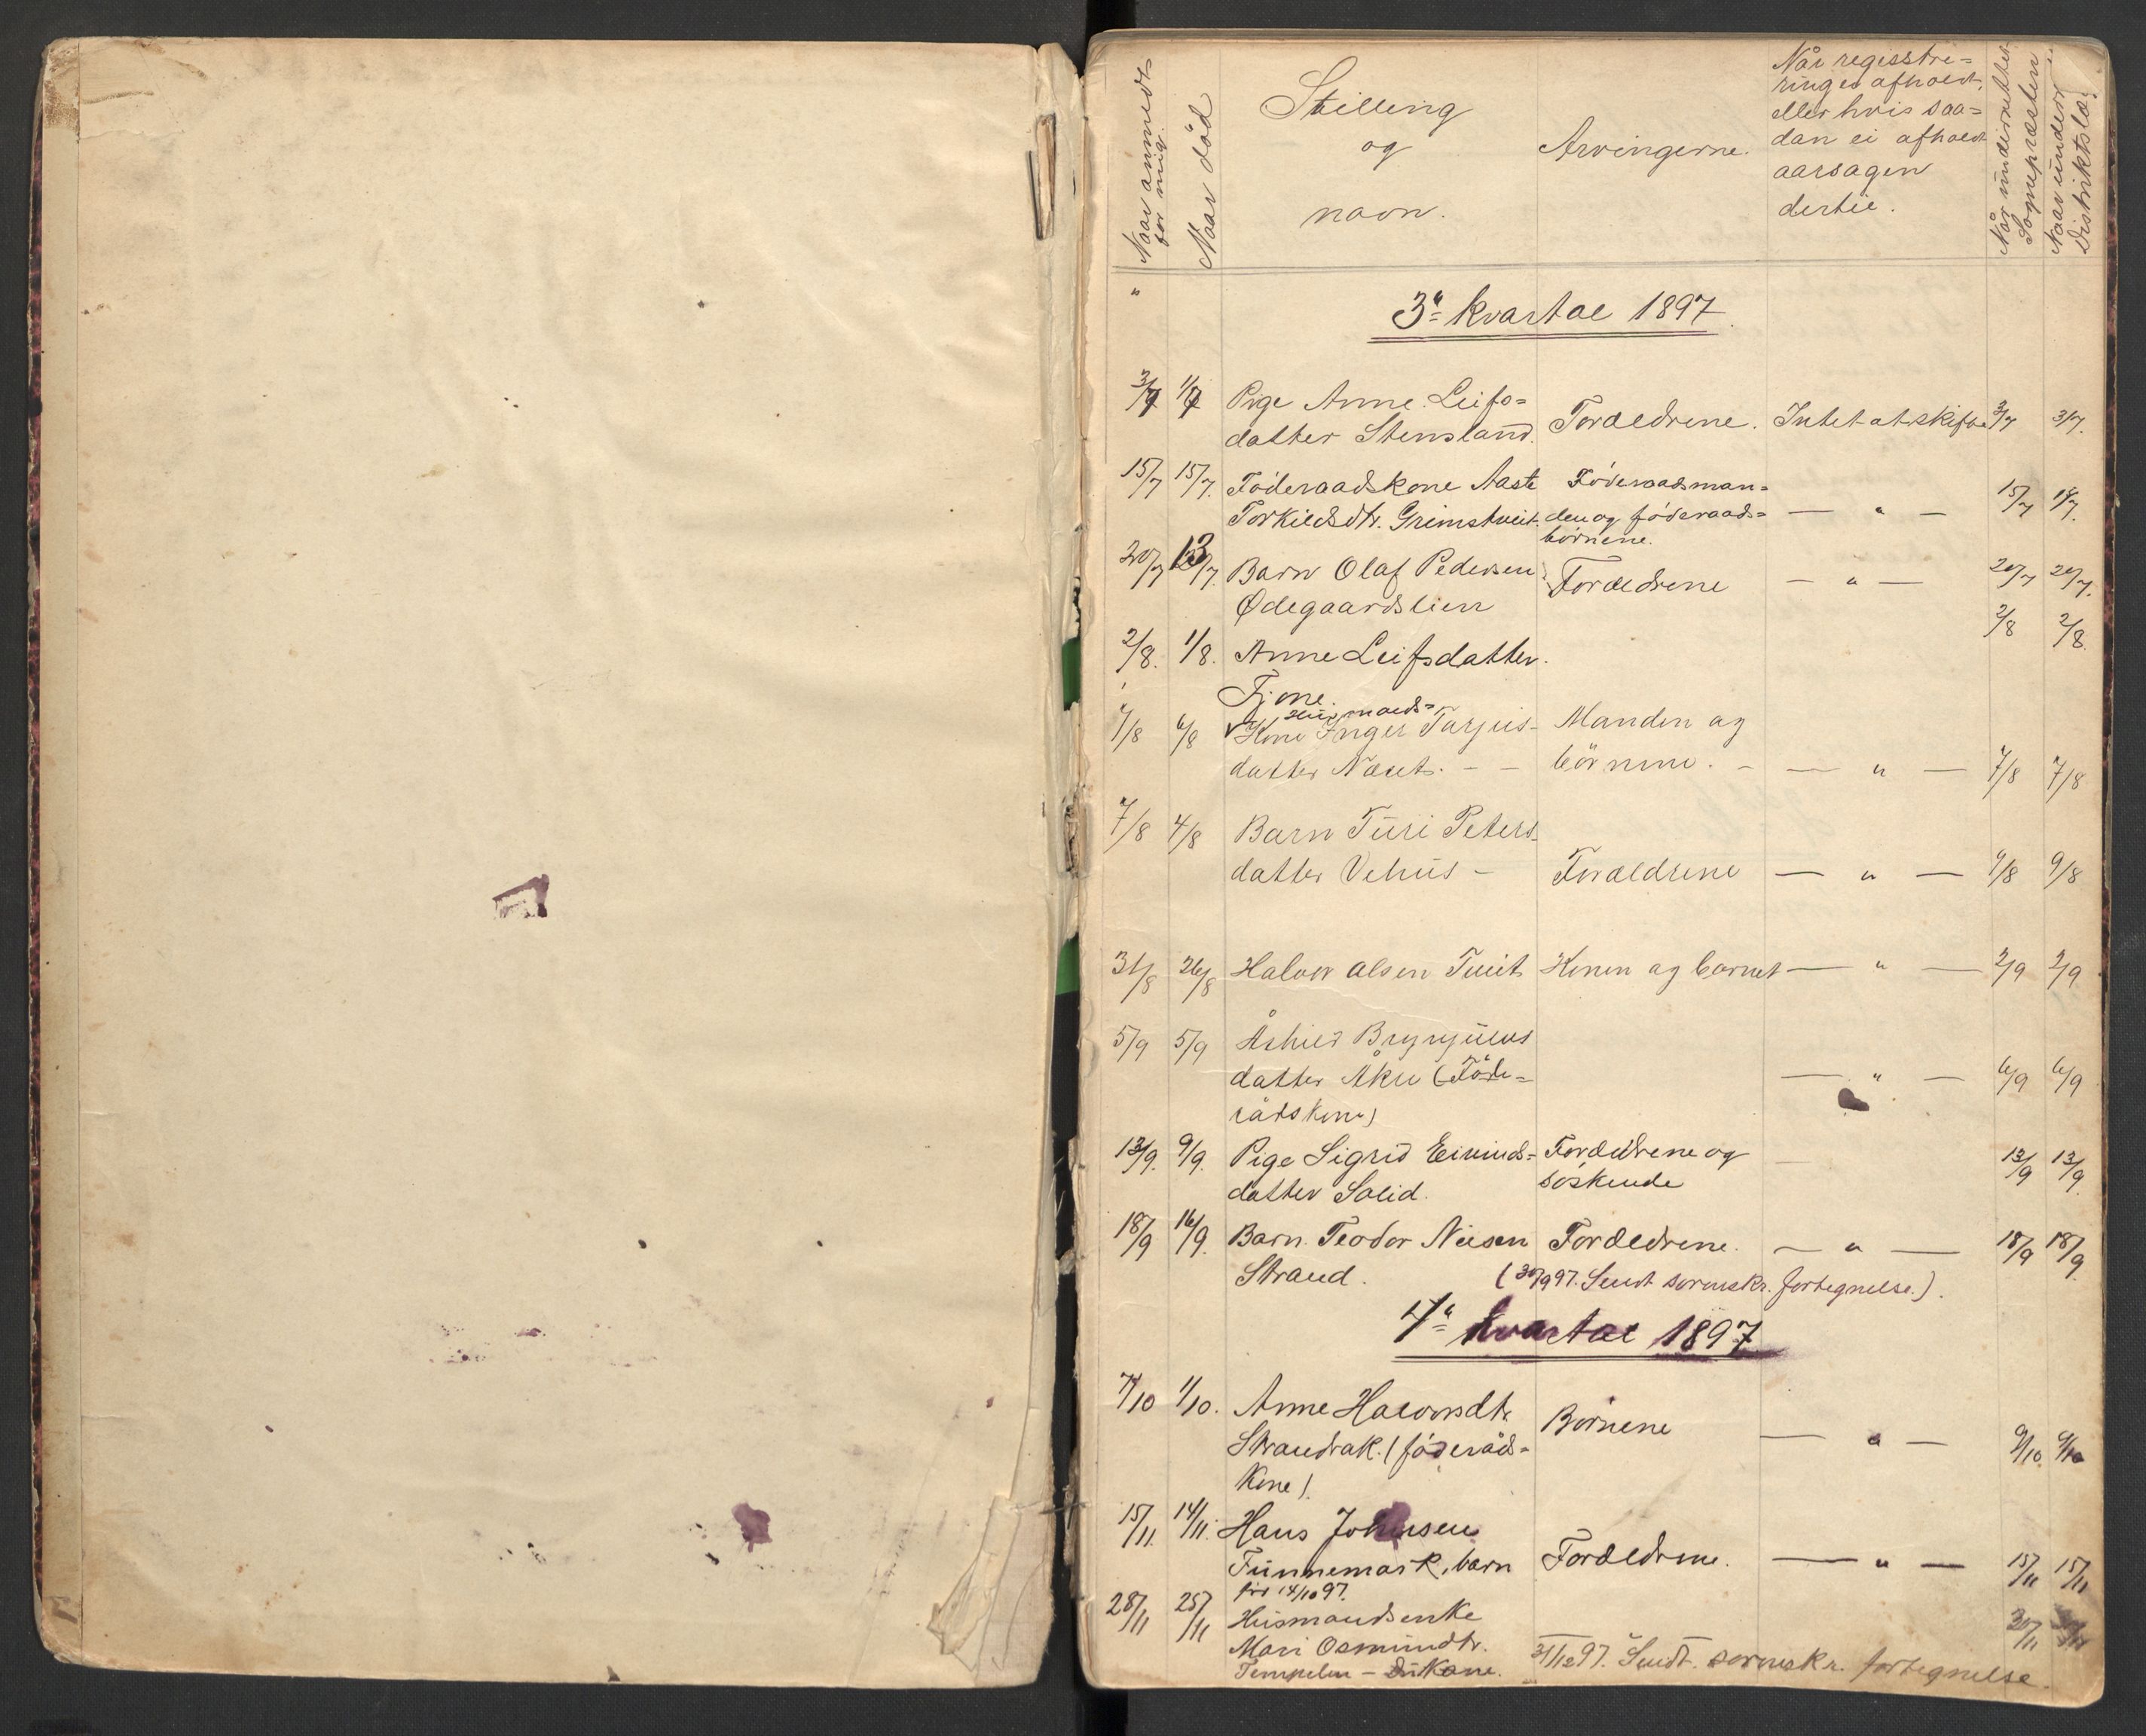 Naar anmedt for mig.
Naar död
Stilling
og
navn.
Arvingerne.
Når registre=
ringen afholdt,
eller hvis saa=
dan ei afholdt
aarsagen
dertil.
Når underrettet
Sognepræsten
Naar underr.
Distriktslæ.
3" kvartal 1897.
3/7 1/7 Pige Anne Leifs=
datter Stensland. Forældrene. Intet at skifte 3/7 3/7.
15/7 15/7. Föderaadskone Aaste Föderaadsman=
Torkildsdtr. Grimstveit. den og föderaads= — " — 15/7
börnene.
20/7 13/7. Barn Olaf Pedersen
Ødegaardslien Forældrene — " — 20/7 20/7.
2/8. 1/8. Anne Leifsdatter. 2/8 2/8.
Fjone.
Husmands=
7/8 6/8 Kone Inger Tarjeis- Manden og
datter Næset. - - börnene. - — " — 7/8 7/8
7/8 4/8 Barn Turi Peters-
datter Vehus - Forældrene — " — 9/8 9/8
31/8 26/8 Halvor Olsen Tveit Konen og barnet — " — 2/9 2/9
5/9 5/9 Åshild Brynjuls
datter Åkre (Föde=
rådskone) — " — 6/9 6/9
13/9. 9/9. Pige Sigrid Eivinds= Forældrene og
datter Solid. söskende — 13/9 13/9.
18/9 16/9. Barn Teodor Nilsen Forældrene. — " — 18/9 18/9.
Strand. (30/9 97. Sendt sorenskr. fortegnelse.).
4" kvartal 1897
7/10 1/10. Anne Halvorsdtr.
Strandrak. (föderåds= Börnene — " — 9/10 9/10
kone).
15/11. 14/11. Hans Johnsen
Tunnemark, barn Forældrene. — " — 15/11 15/11
för 14/10 97.
28/11 25/11 Husmandsenke 30/11 30/11
Mari Osmundtr.
Tempelen - 31/12 97. Sendt sorenskr. fortegnelse.